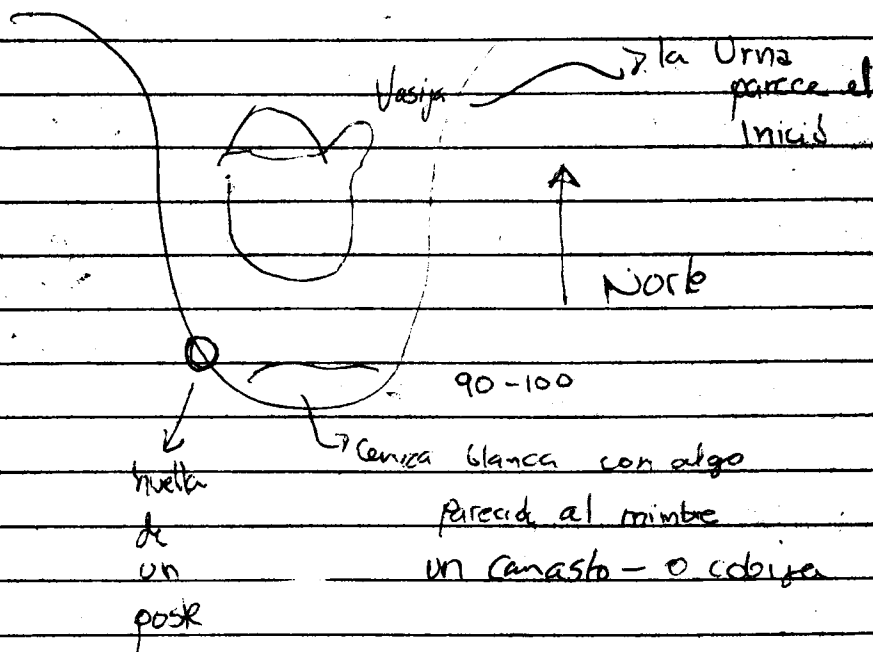 Vasija
la Urna
parece el
Inició
Norte
90-100
huella
de
un
poste
Ceniza blanca con algo
Parecido al mimbre
un Canasto - o cobija